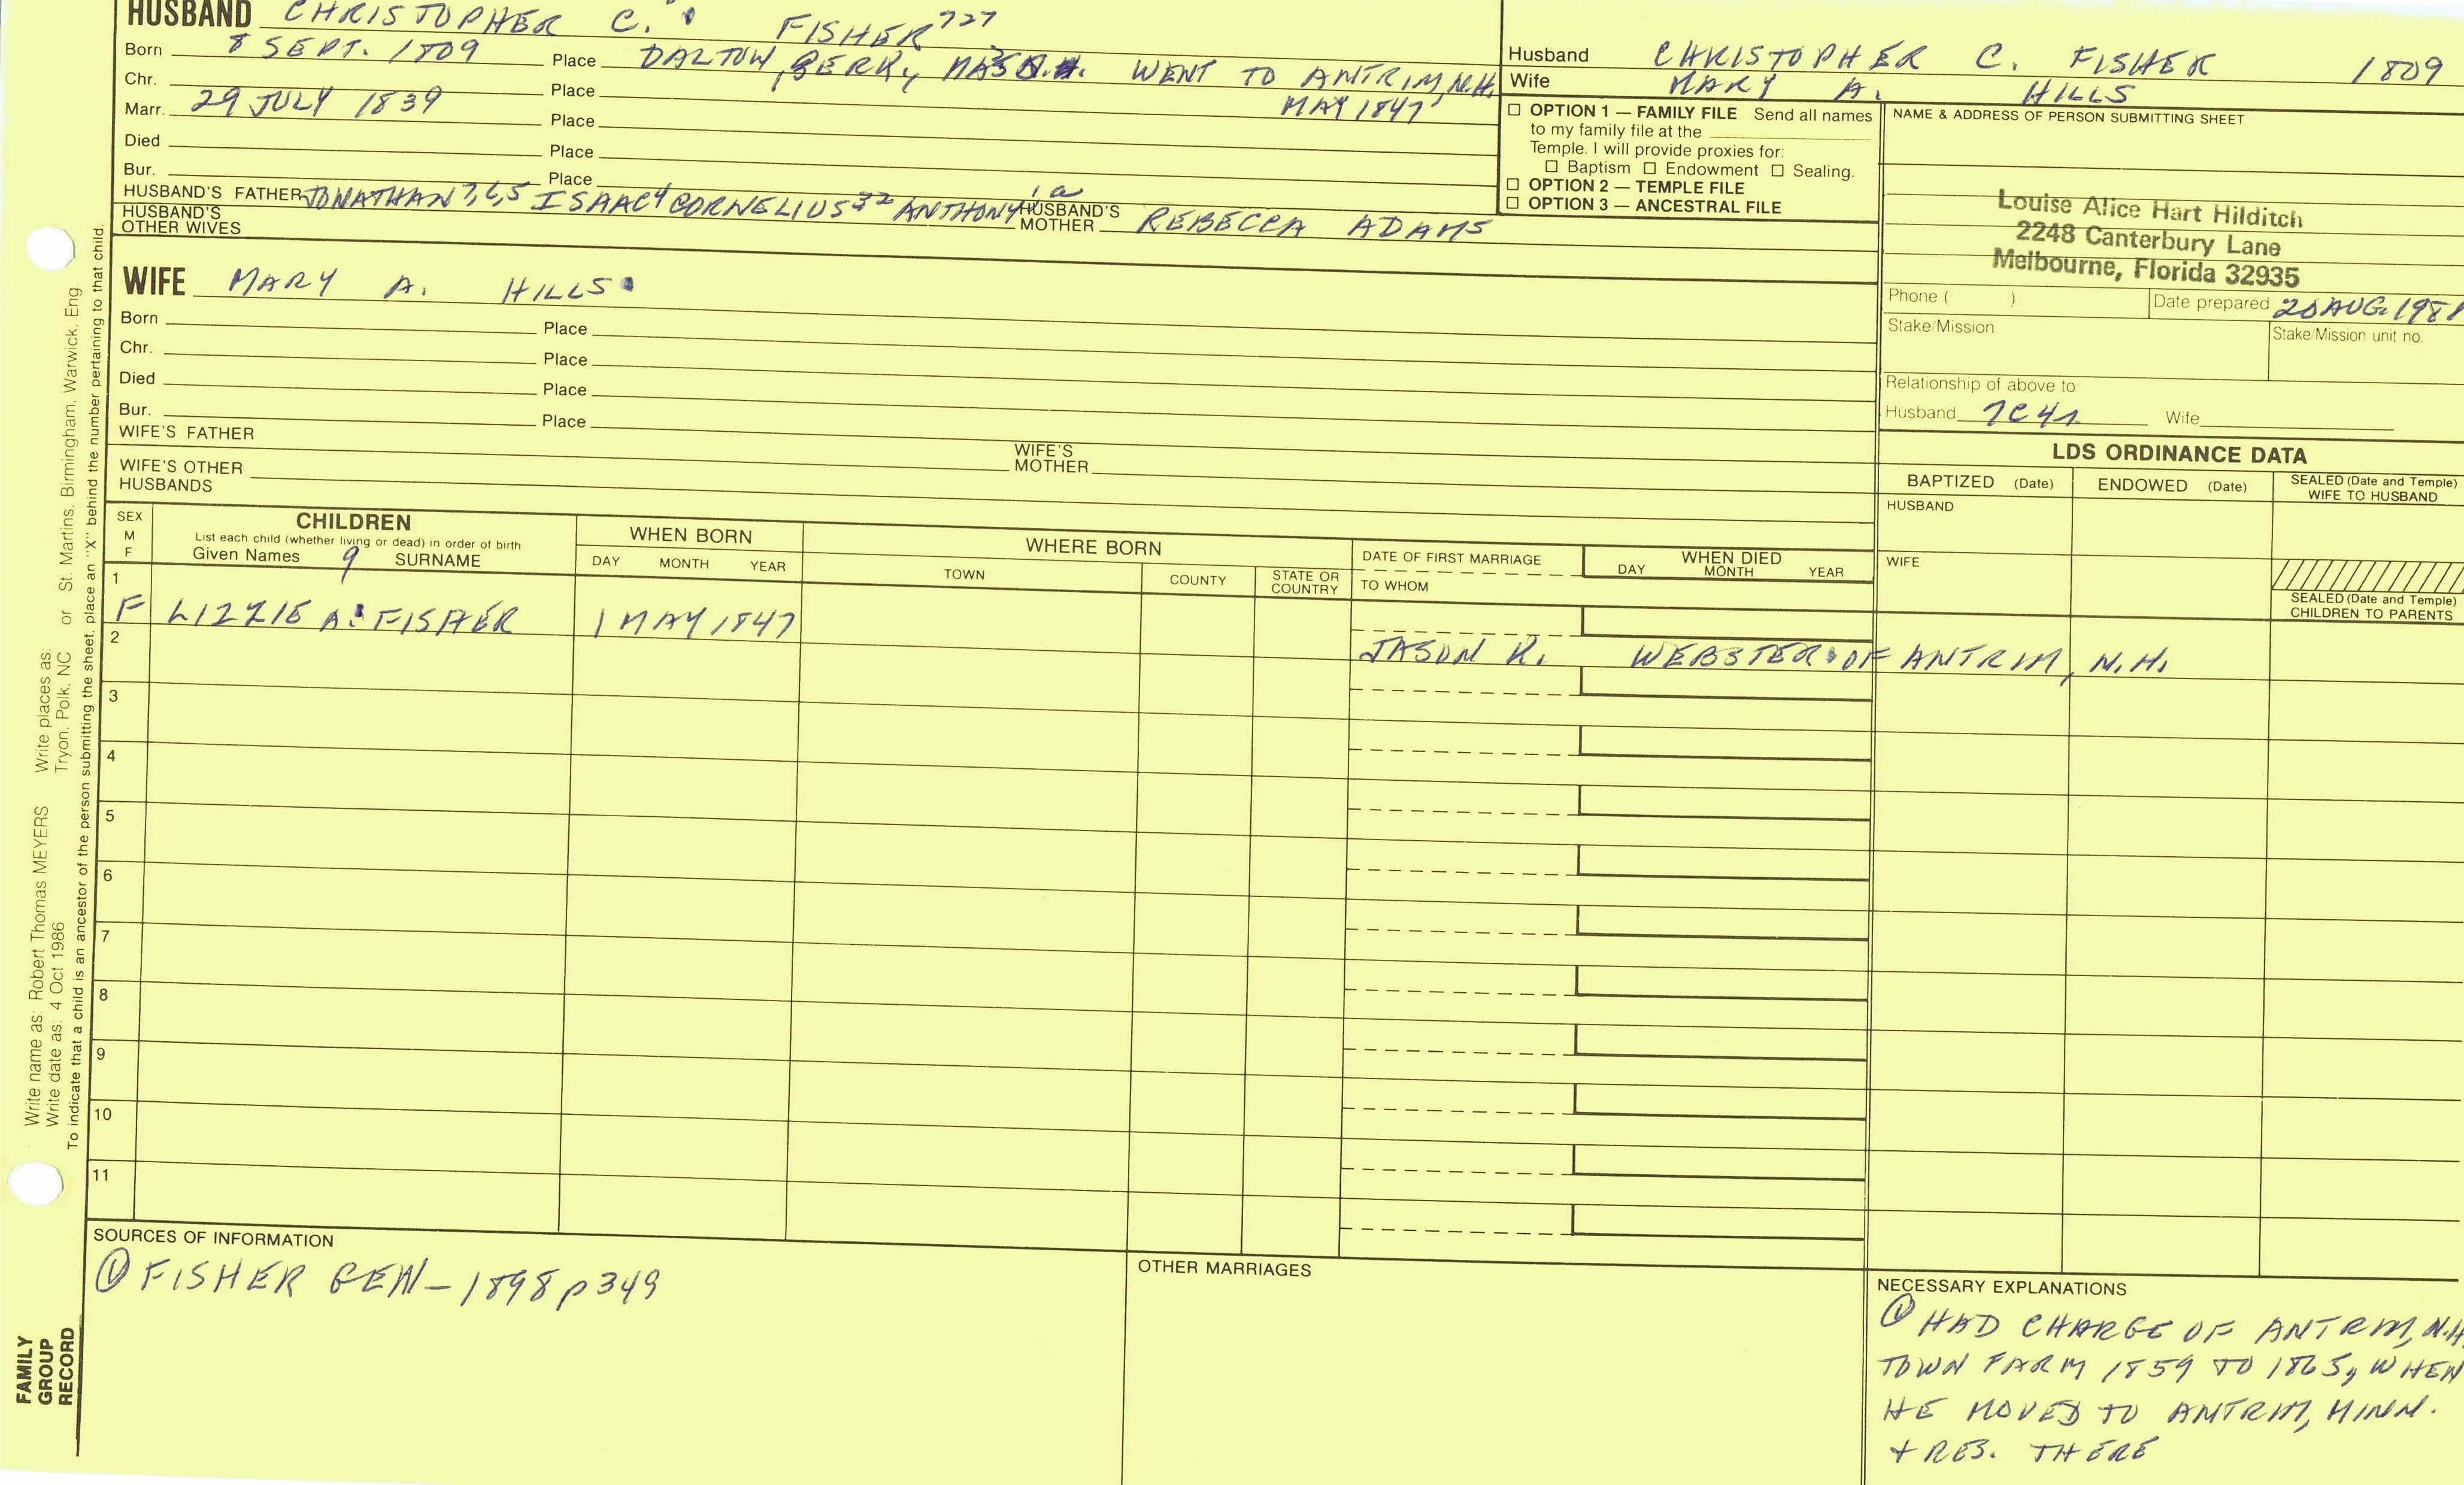 HUSBAND CHRISTOPHER C. FISHER 727
Born 8 SEPT. 1809 Place DALTON, BERK, MASS. WENT TO ANTRIM, N.H. MAY 1847
Chr. Place
Marr. 29 JULY 1839 Place
Died Place
Bur. Place
HUSBAND'S FATHER JONATHAN 7,6,5 ISAAC 4 CORNELIUS 32 ANTHONY 1a HUSBAND'S MOTHER REBECCA ADAMS
HUSBAND'S OTHER WIVES
WIFE MARY A. HILLS
Born Place
Chr. Place
Died Place
Bur. Place
WIFE'S FATHER WIFE'S MOTHER
WIFE'S OTHER HUSBANDS
Husband CHRISTOPHER C. FISHER 1809
Wife MARY A. HILLS
☐ OPTION 1 — FAMILY FILE Send all names
to my family file at the
Temple. I will provide proxies for:
☐ Baptism ☐ Endowment ☐ Sealing.
☐ OPTION 2 — TEMPLE FILE
☐ OPTION 3 — ANCESTRAL FILE
NAME & ADDRESS OF PERSON SUBMITTING SHEET
Louise Alice Hart Hilditch
2248 Canterbury Lane
Melbourne, Florida 32935
Phone ( ) Date prepared AUG. 
Stake/Mission Stake/Mission unit no.
Relationship of above to
Husband 7C4r Wife
LDS ORDINANCE DATA
BAPTIZED (Date) ENDOWED (Date) SEALED (Date and Temple) WIFE TO HUSBAND
HUSBAND
WIFE
SEALED (Date and Temple) CHILDREN TO PARENTS
SEX M F
CHILDREN
List each child (whether living or dead) in order of birth
Given Names 9 SURNAME
WHEN BORN
DAY MONTH YEAR
WHERE BORN
TOWN COUNTY STATE OR COUNTRY
DATE OF FIRST MARRIAGE
TO WHOM
WHEN DIED
DAY MONTH YEAR
1
F LIZZIE A. FISHER 1 MAY 1847
2
JASON K. WEBSTER OF ANTRIM, N.H.
3
4
5
6
7
8
9
10
11
SOURCES OF INFORMATION
① FISHER GEN – 1898 p 349
OTHER MARRIAGES
NECESSARY EXPLANATIONS
① HAD CHARGE OF ANTRIM, N.H.
TOWN FARM 1859 TO 1865, WHEN
HE MOVED TO ANTRIM, MINN.
+ RES. THERE
Write name as: Robert Thomas MEYERS Write places as: St. Martins, Birmingham, Warwick, Eng
Write date as: 4 Oct 1986 Tryon, Polk, NC or
To indicate that a child is an ancestor of the person submitting the sheet, place an "X" behind the number pertaining to that child.
FAMILY
GROUP
RECORD